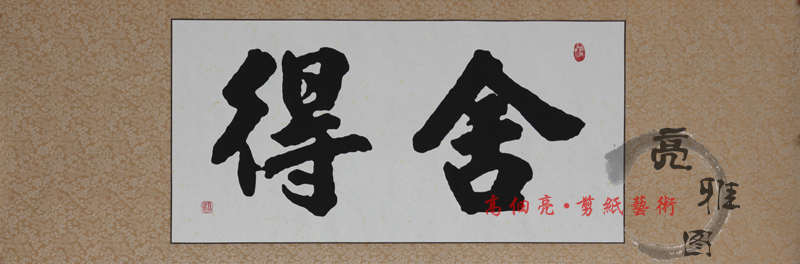 舍得
高佃亮·剪紙藝術
亮雅图